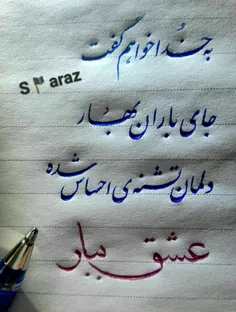 به خدا خواهم گفت
S araz
جای باران بهار
دلمان تشنه‌ی احساس شده
عشق ببار